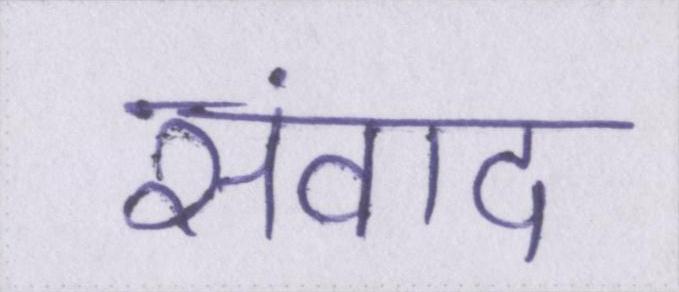 संवाद